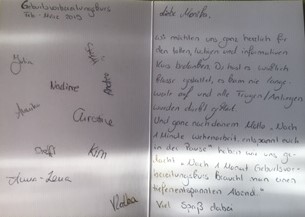 Geburtsvorbereitungskurs
Feb - März 2015
Julia
Nadine
Andrea
Caroline
Steffi
Kim
Liebe Monika,
wir möchten uns ganz herzlich für
den tollen, lustigen und informativen
Kurs bedanken. Du hast es wirklich
klasse gestaltet, es kam nie Lange-
weile auf und alle Fragen/Anliegen
wurden
Und ganz nach deinem Motto „Noch
1 Minute weiteratmen, entspannt euch
in der Pause" haben wir uns ge-
dacht „Nach 1 Monat Geburtsvor-
bereitungskurs braucht man einen
tiefenentspannten Abend."
Viel Spaß dabei